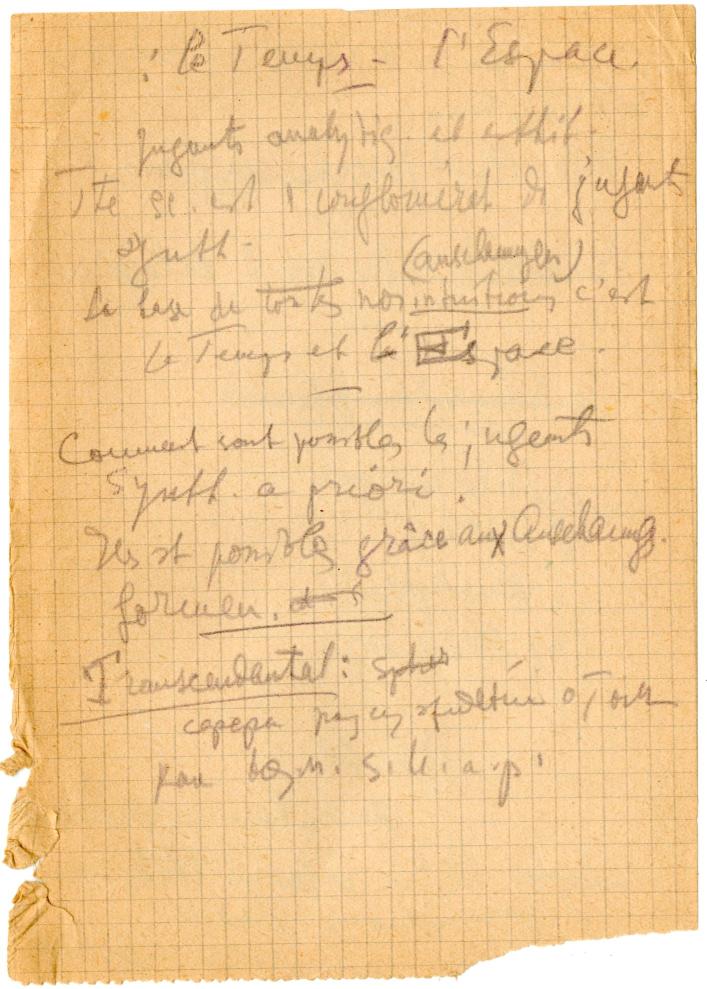 : Le Temps - l'Espace.
jugants analytiq. et
Tte sc. est 1 conglomérat de jugants
synth.
(anschaungen)
La base de toutes nos intuitions c'est
le Temps et l'Espace.
Comment sont possibles les jugents
Synth. a priori ?
Ils st possibles grâce aux Anschaung.
formen.
Transcendantal :
сфера о том
как возм. S. U. a. p.